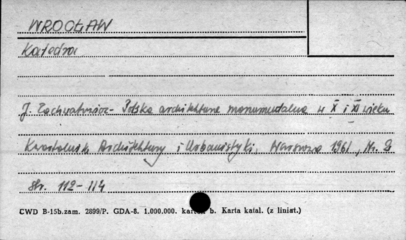 WROCŁAW
Katedra
J. Zachwatowicz - Polska architektura monumentalna w X i XI wieku
Kwartalnik Architektury i Urbanistyki, Warszawa 1961, Nr.
Str. 112-114
CWD B-15b. zam. 2899/P. GDA-8. 1.000.000. kar b. Karta katal. (z liniat.)